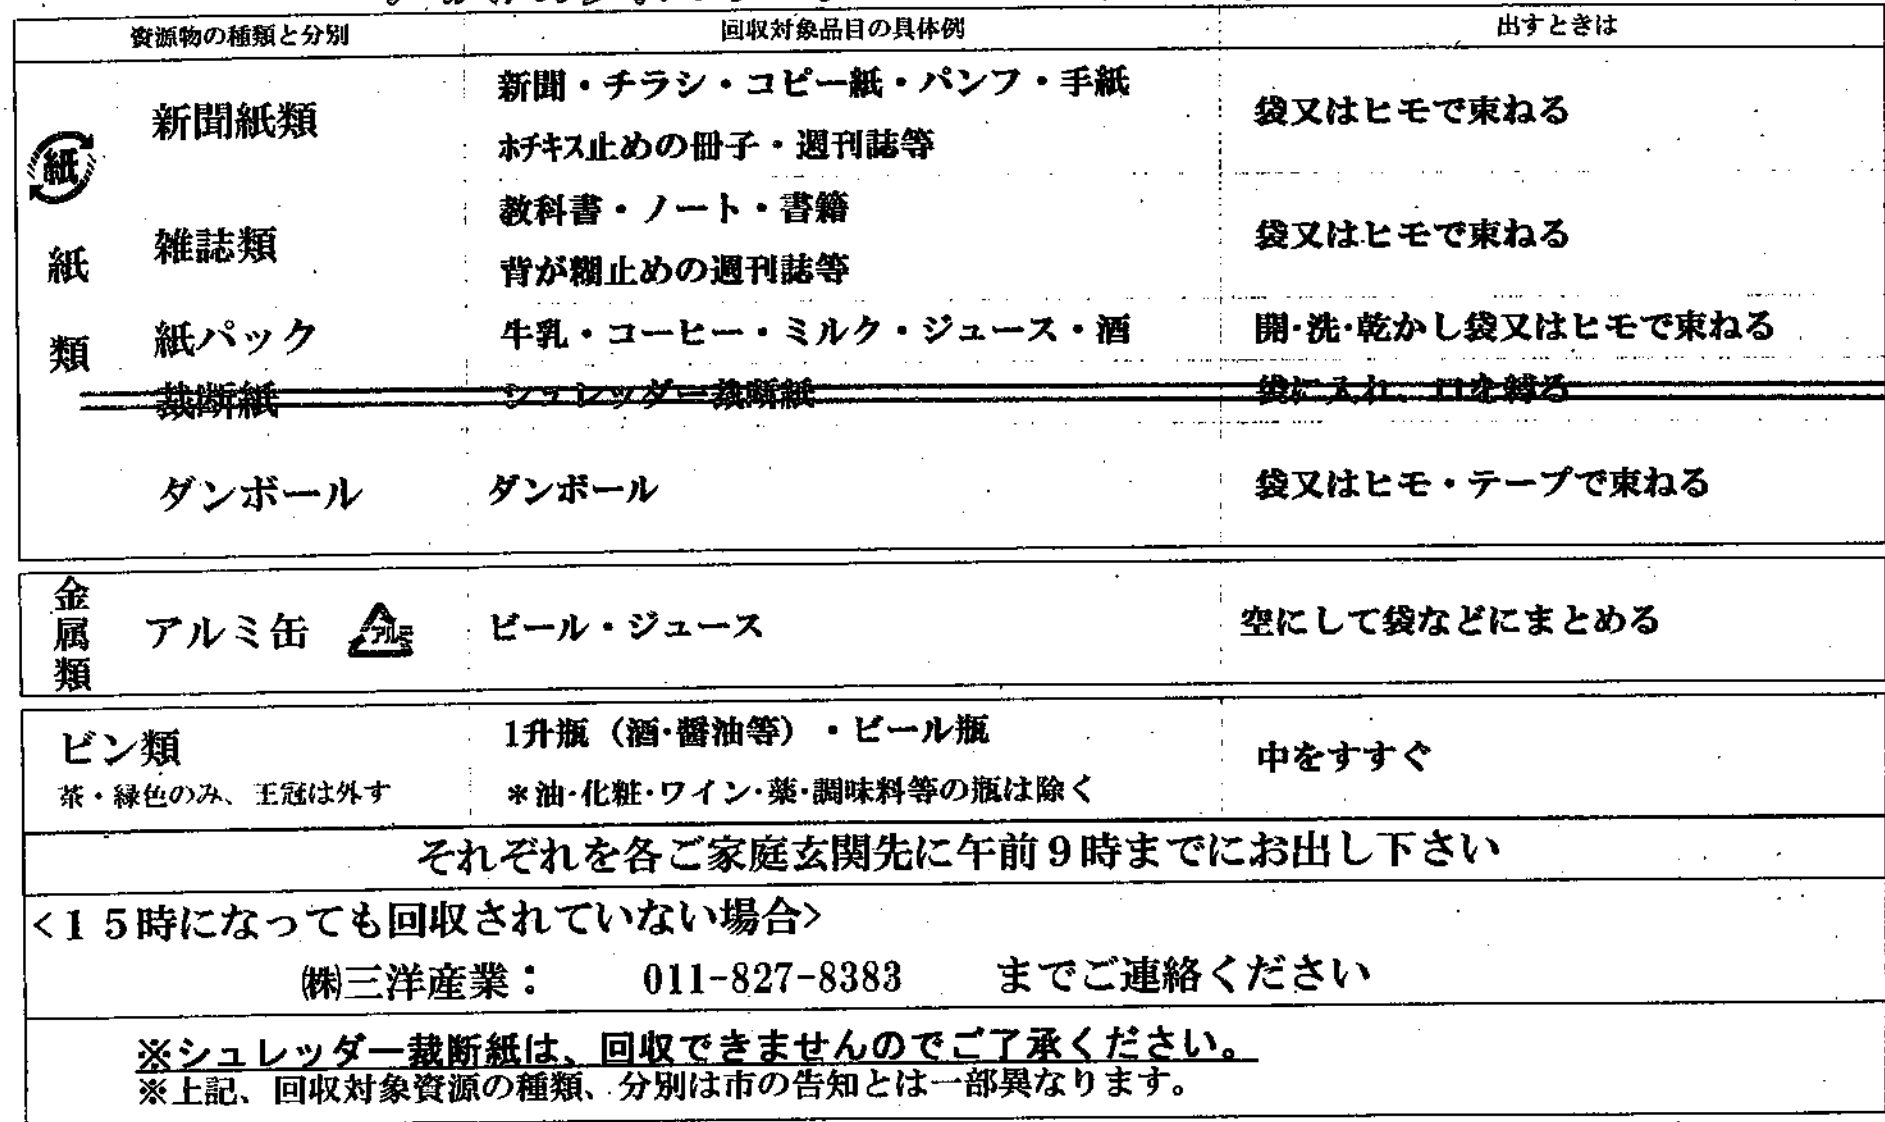 資源物の種類と分別 回収対象品目の具体例 出すときは
紙
紙類
新聞紙類 新聞・チラシ・コピー紙・パンフ・手紙 袋又はヒモで束ねる
ホチキス止めの冊子・週刊誌等
雑誌類 教科書・ノート・書籍 袋又はヒモで束ねる
背が糊止めの週刊誌等
紙パック 牛乳・コーヒー・ミルク・ジュース・酒 開・洗・乾かし袋又はヒモで束ねる
裁断紙 シュレッダー裁断紙 袋に入れ、口を縛る
ダンボール ダンボール 袋又はヒモ・テープで束ねる
金属類
アルミ缶 アルミ ビール・ジュース 空にして袋などにまとめる
ビン類 1升瓶（酒・醤油等）・ビール瓶 中をすすぐ
茶・緑色のみ、王冠は外す ＊油・化粧・ワイン・薬・調味料等の瓶は除く
それぞれを各ご家庭玄関先に午前９時までにお出し下さい
<１５時になっても回収されていない場合>
㈱三洋産業： 011-827-8383 までご連絡ください
※シュレッダー裁断紙は、回収できませんのでご了承ください。
※上記、回収対象資源の種類、分別は市の告知とは一部異なります。